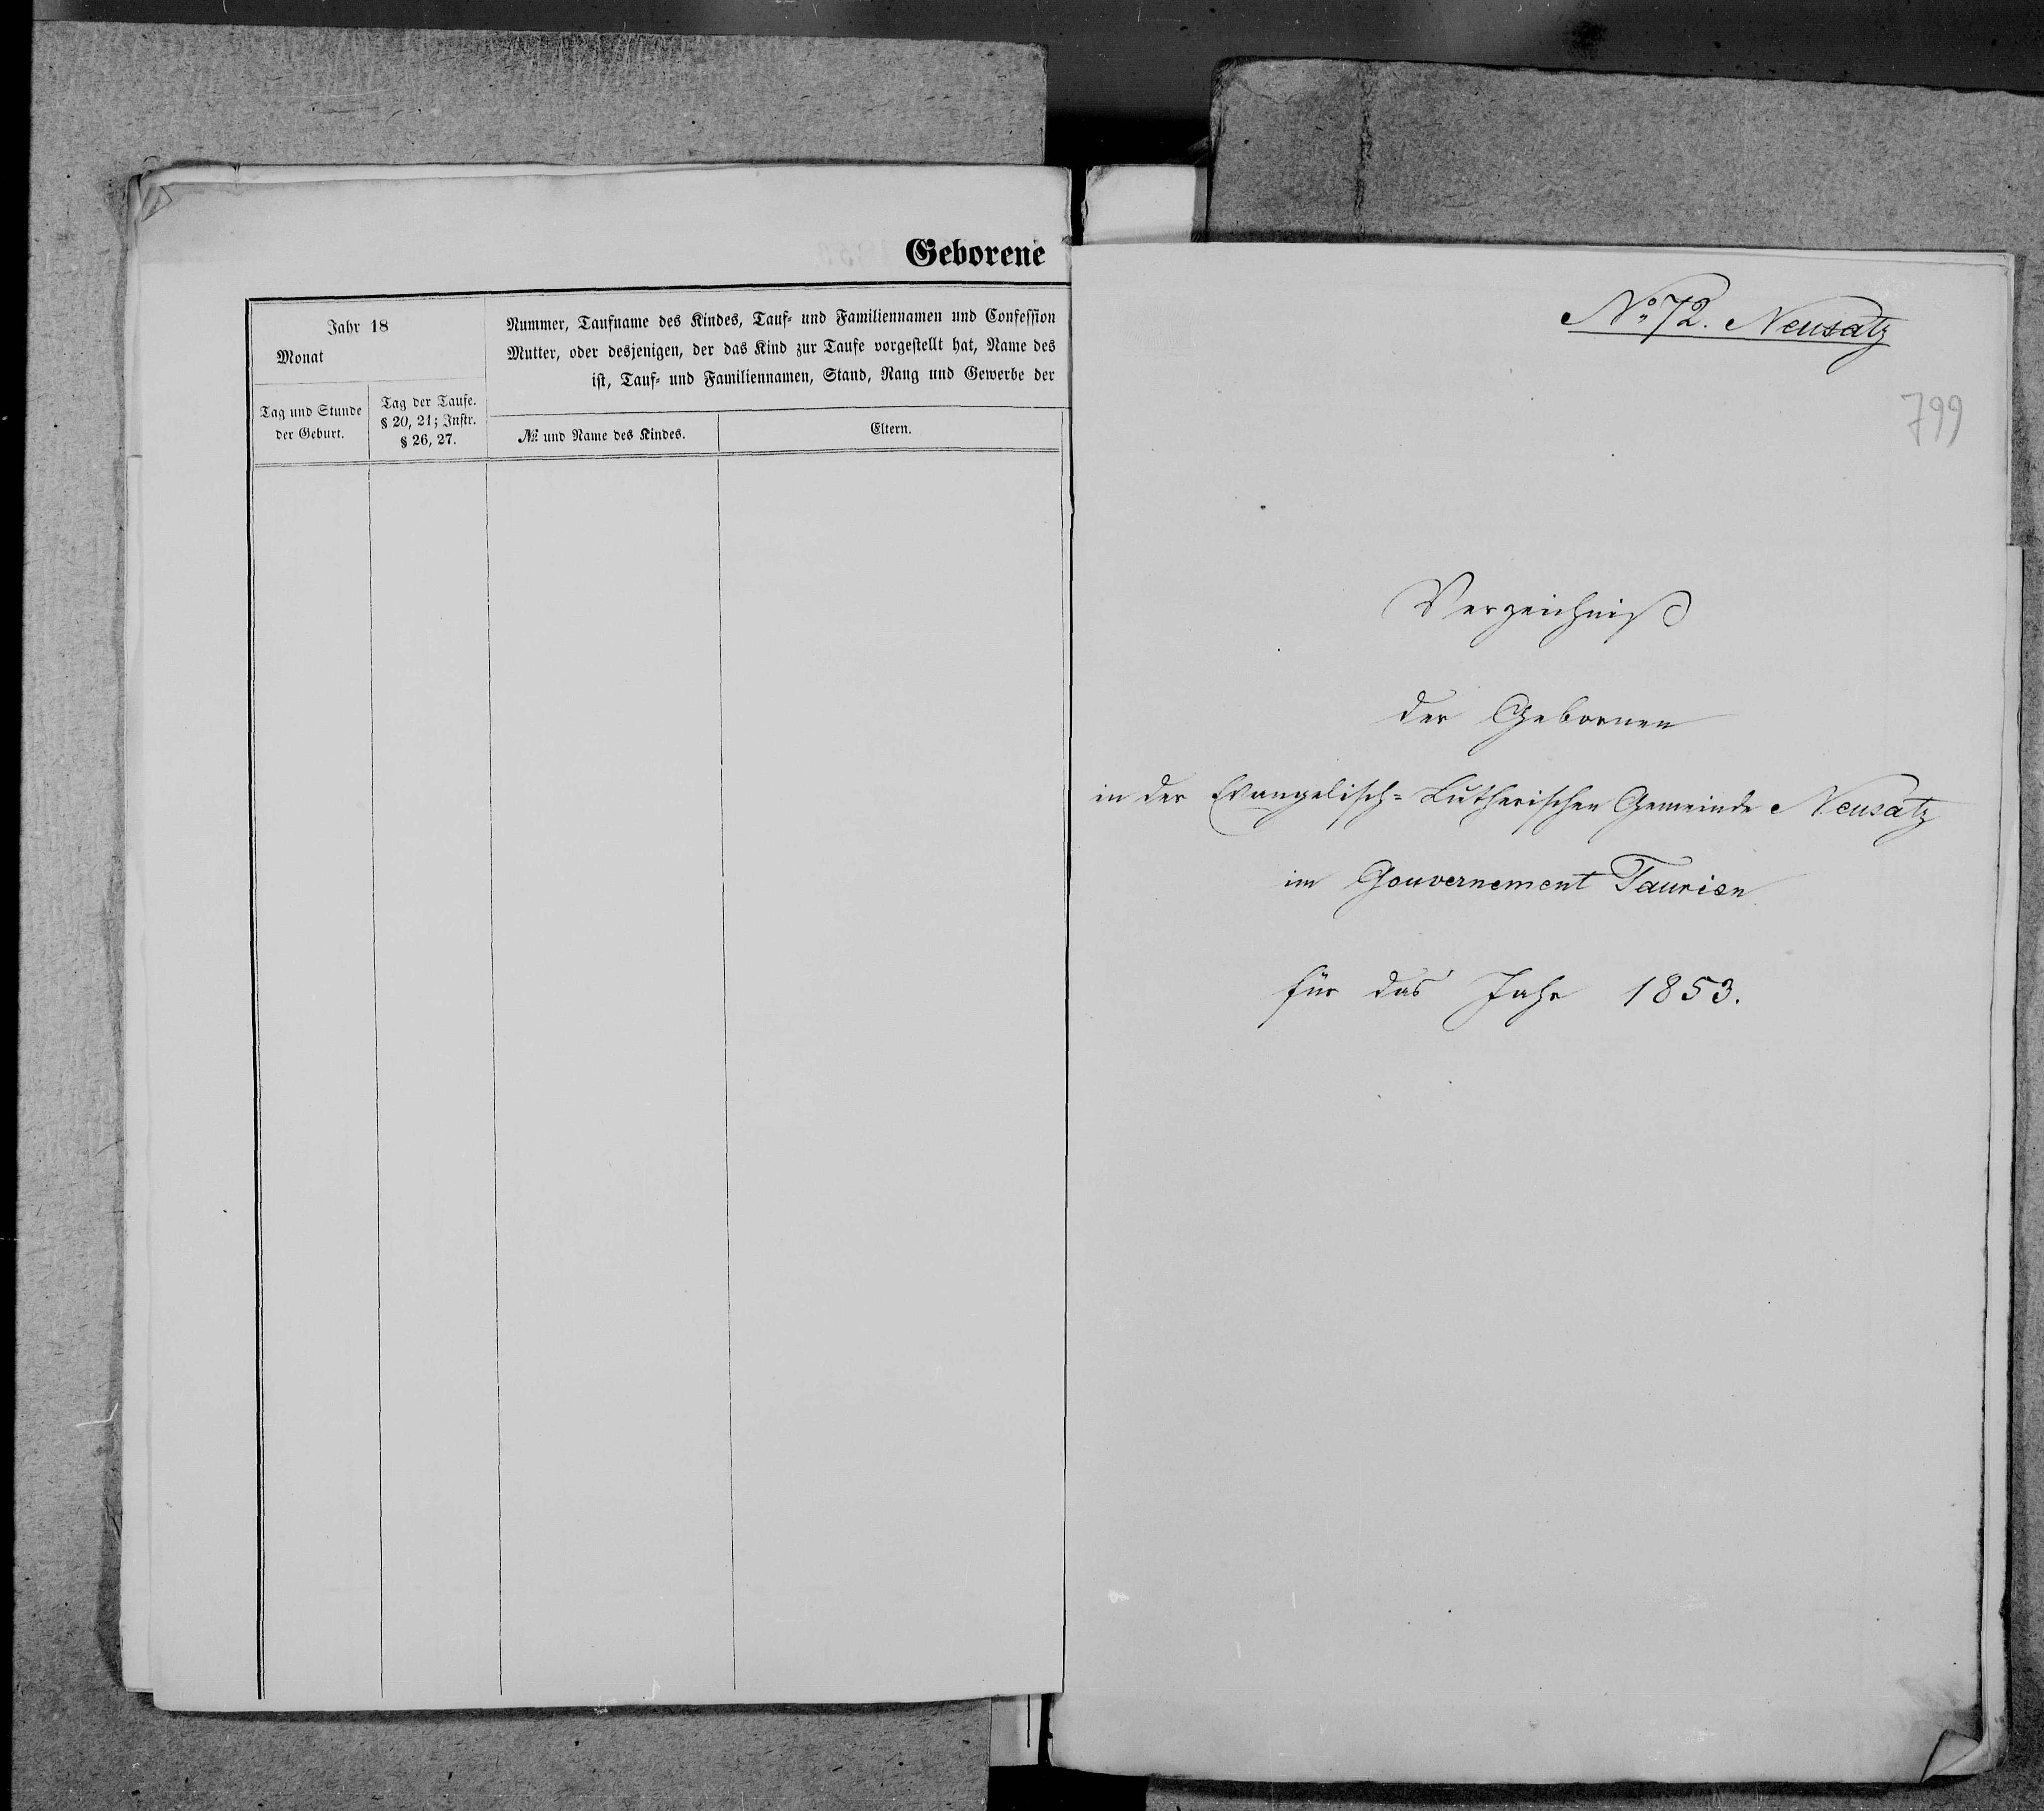 Geborene
Jahr 18
Monat
Nummer, Taufname des Kindes, Tauf- und Familiennamen und Confession
Mutter, oder desjenigen, der das Kind zur Taufe vorgestellt hat, Name des
ist, Tauf- und Familiennamen, Stand, Rang und Gewerbe der
Tag und Stunde
der Geburt.
Tag der Taufe.
§ 20, 21; Instr.
§ 26, 27.
№ und Name des Kindes.
Eltern.
No 72. Neusatz
799
Verzeichniß
der Gebornen
in der Evangelisch-Lutherischen Gemeinde Neusatz
im Gouvernement Taurien
für das Jahr 1853.